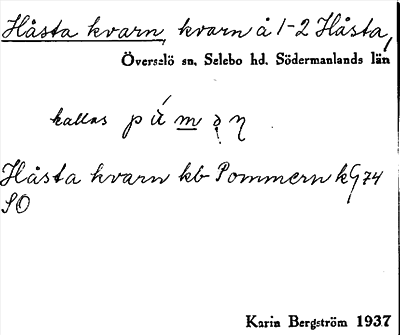 Håsta kvarn, kvarn å 1-2 Håsta,
Överselö sn, Selebo hd, Södermanlands län
kallas
Håsta kvarn kb Pommern kG74
SO
Karin Bergström 1937